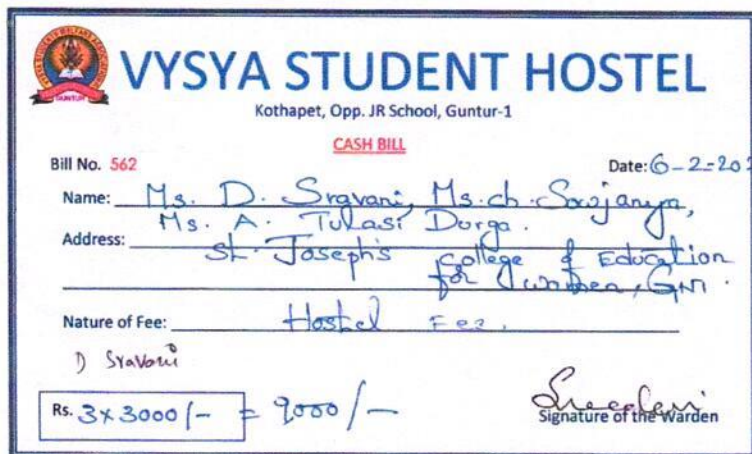 VYSYA STUDENT HOSTEL
Kothapet, Opp. JR School, Guntur-1
CASH BILL
Bill No. 562 Date: 6-2-202
Name: Ms. D. Sravani, Ms. ch. Sowjanya,
Ms. A. Tulasi Durga.
Address: St. Joseph's College of Education
for women, GNT.
Nature of Fee: Hostel Fee.
D Sravani
Rs. 3x3000/- = 9000/-
Sreedevi
Signature of the Warden
GUNTUR